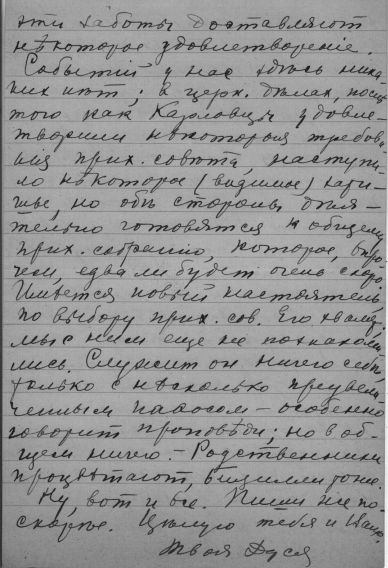 эти заботы доставляютъ
нѣкоторое удовлетвореніе.
Событій у насъ здѣсь ника-
кихъ нѣтъ; въ церк. дѣлахъ, послѣ
того какъ Карловцы удовле-
творили нѣкоторыя требова-
нія прих. совѣта, наступи-
ло нѣкоторое (видимое) зати-
шье, но обѣ стороны дѣя-
тельно готовятся къ общему
прих. собранію, которое, впро-
чем, едва ли будетъ очень скоро.
Имѣется новый настоятель,
по выбору прих. сов. Его хвалят,
мы с ним еще не познакоми-
лись. Служит он ничего себѣ,
только с нѣсколько преувели-
ченным паѳосом – особенно
говорит проповѣди; но в об-
щем ничего. – Родственники
процвѣтают, в
Ну, вот и все. Пиши же по-
скорѣе. Цѣлую тебя и
Твоя Дуся